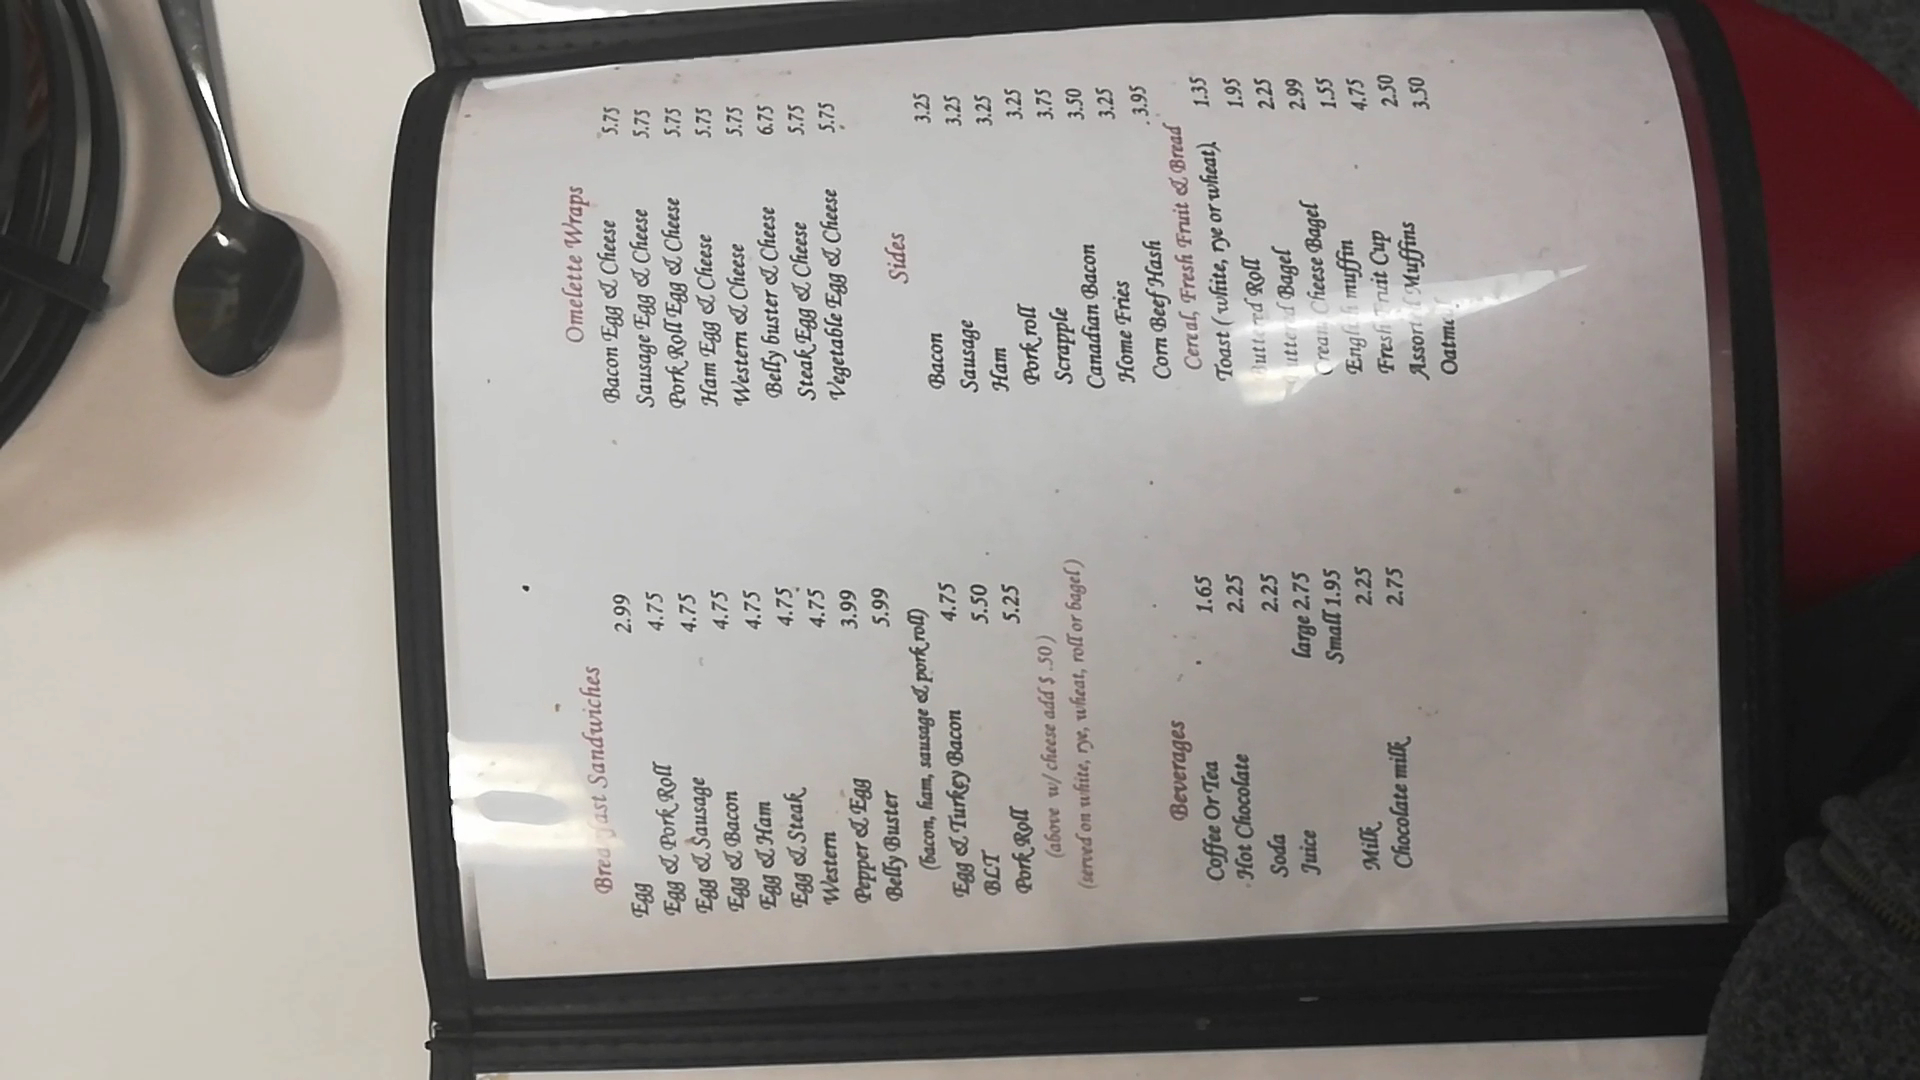 Breakfast Sandwiches
Egg 2.99
Egg & Pork Roll 4.75
Egg & Sausage 4.75
Egg & Bacon 4.75
Egg & Ham 4.75
Egg & Steak 4.75
Western 4.75
Pepper & Egg 3.99
Belly Buster 5.99
(bacon, ham, sausage & pork roll)
Egg & Turkey Bacon 4.75
BLT 5.50
Pork Roll 5.25
(above w/ cheese add $ .50)
(served on white, rye, wheat, roll or bagel)
Beverages
Coffee Or Tea 1.65
Hot Chocolate 2.25
Soda 2.25
Juice large 2.75
Small 1.95
Milk 2.25
Chocolate milk 2.75
Omelette Wraps
Bacon Egg & Cheese 5.75
Sausage Egg & Cheese 5.75
Pork Roll Egg & Cheese 5.75
Ham Egg & Cheese 5.75
Western & Cheese 5.75
Belly buster & Cheese 6.75
Steak Egg & Cheese 5.75
Vegetable Egg & Cheese 5.75
Sides
Bacon 3.25
Sausage 3.25
Ham 3.25
Pork roll 3.25
Scrapple 3.75
Canadian Bacon 3.50
Home Fries 3.25
Corn Beef Hash 3.95
Cereal, Fresh Fruit & Bread
Toast ( white, rye or wheat) 1.35
Buttered Roll 1.95
Buttered Bagel 2.25
Cream Cheese Bagel 2.99
English muffin 1.55
Fresh Fruit Cup 4.75
Assorted Muffins 2.50
Oatmeal 3.50